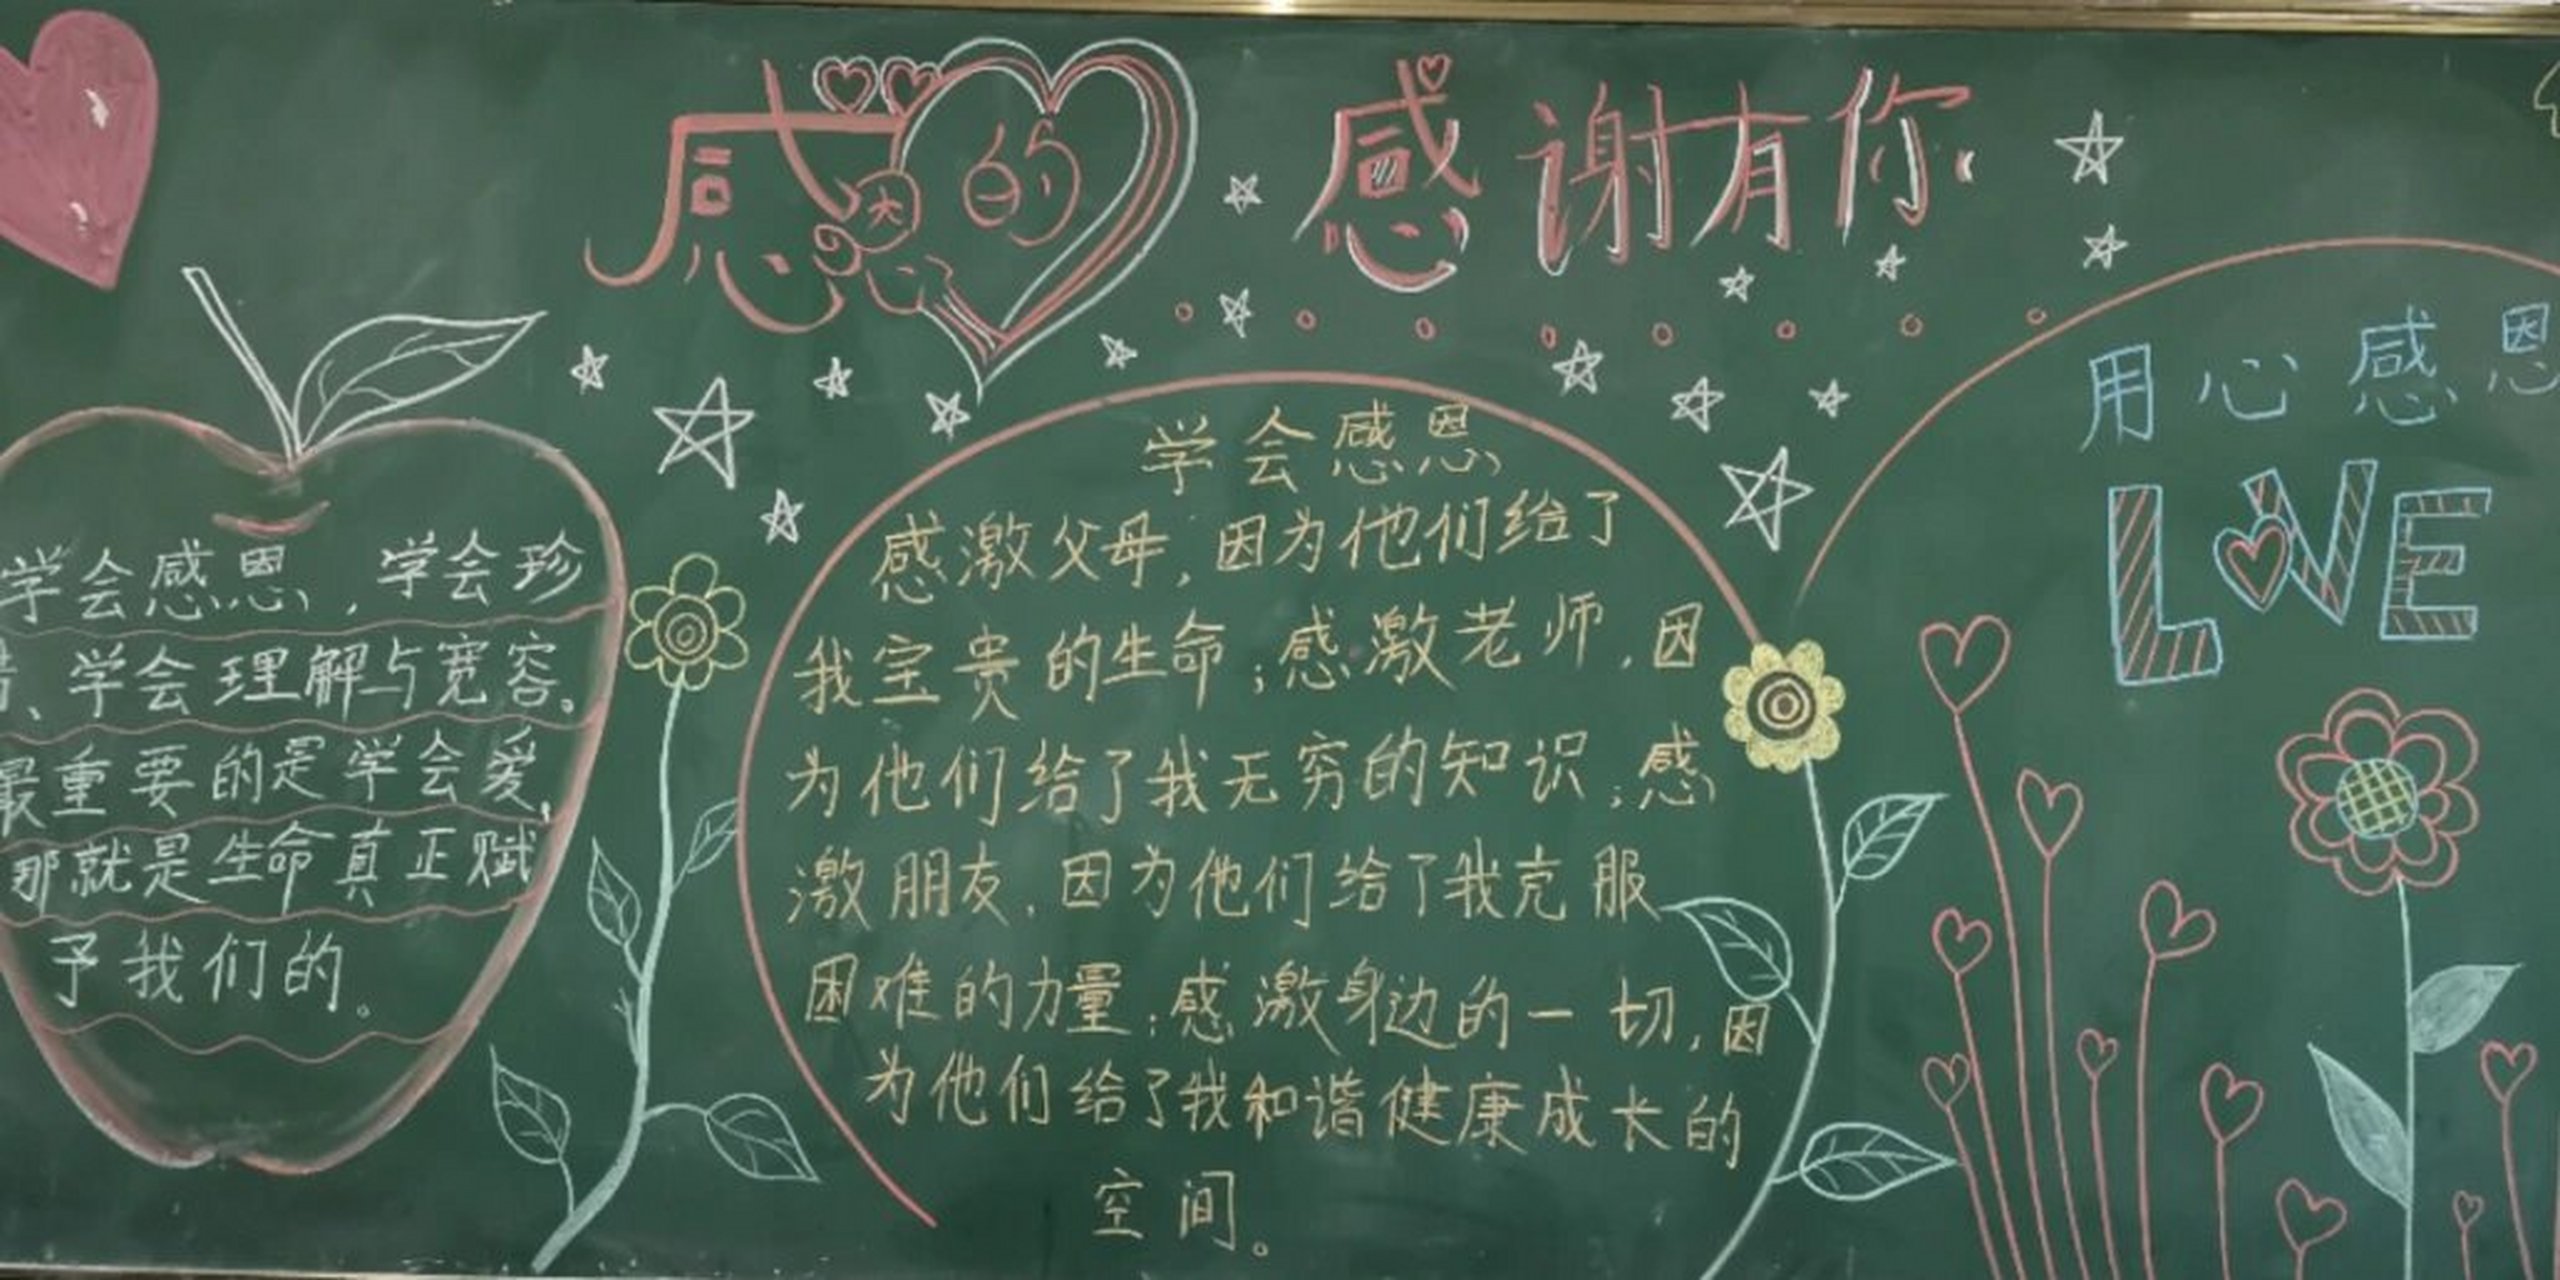 感恩的
感谢有你
学会感恩，学会珍
惜、学会理解与宽容。
最重要的是学会爱，
那就是生命真正赋
予我们的。
学会感恩
感激父母，因为他们给了
我宝贵的生命；感激老师，因
为他们给了我无穷的知识；感
激朋友，因为他们给了我克服
困难的力量；感激身边的一切，因
为他们给了我和谐健康成长的
空间。
用心感恩
LOVE